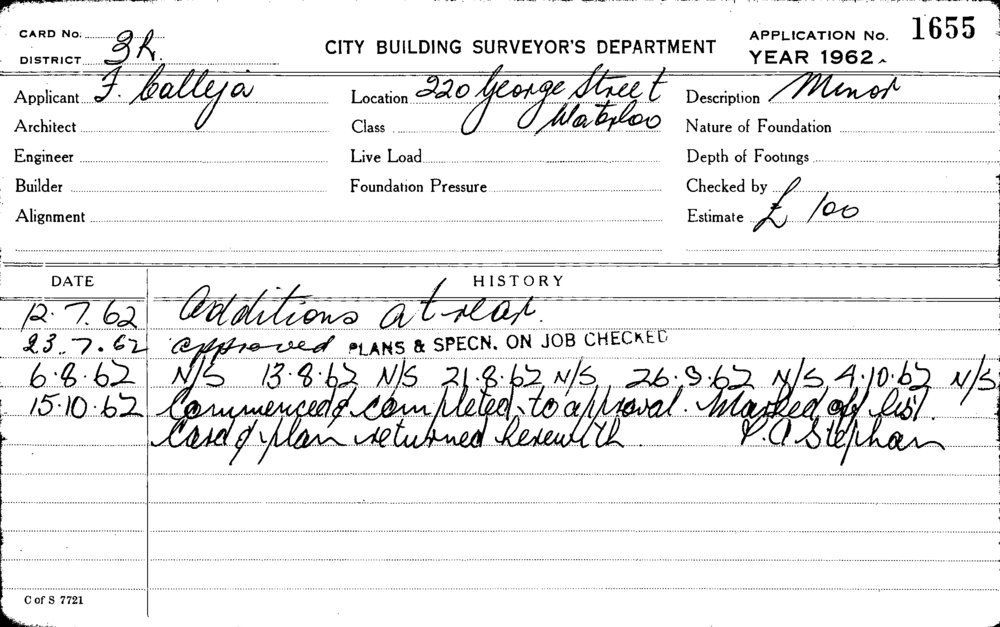 CARD No. 3h.
DISTRICT
CITY BUILDING SURVEYOR'S DEPARTMENT
APPLICATION No. 1655
YEAR 1962
Applicant F. Calleja
Location 220 George Street
Waterloo
Description Minor
Architect
Class
Nature of Foundation
Engineer
Live Load
Depth of Footings
Builder
Foundation Pressure
Checked by
Alignment
Estimate £ 100
DATE HISTORY
12.7.62 Additions at rear.
23.7.62 approved PLANS & SPECN. ON JOB CHECKED
6.8.62 N/S 13.8.62 N/S 21.8.62 N/S 26.9.62 N/S 4.10.62 N/S
15.10.62 Commenced & completed to approval. Marked off list.
Card & plan returned herewith P.A Stephan
C of S 7721